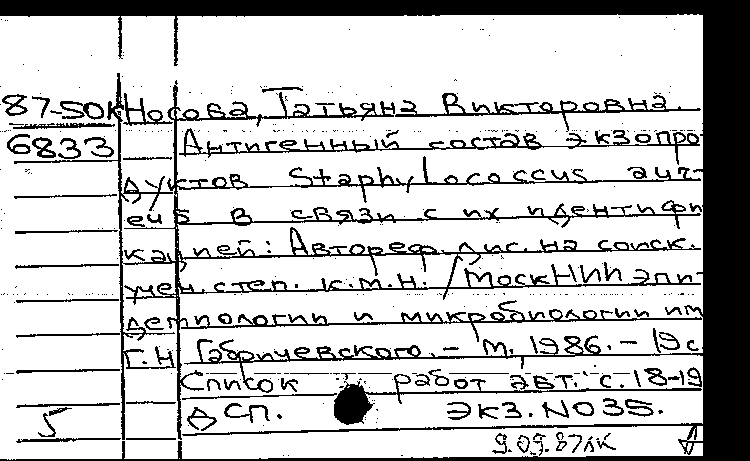 87-50К Носова, Татьяна Викторовна.
6833 Антигенный состав экзопро-
дуктов Staphylococcus aur-
eus в связи с их идентифи-
кацией: Автореф. дис. на соиск.
учен. степ. к.м.н. / Моск НИИ эпи-
демиологии и микробиологии им.
Г.Н Габричевского. - М., 1986. - 19 с.
Список работ авт.: с. 18-19
5 ДСП. ЭКЗ. NO35.
9.09.87лк